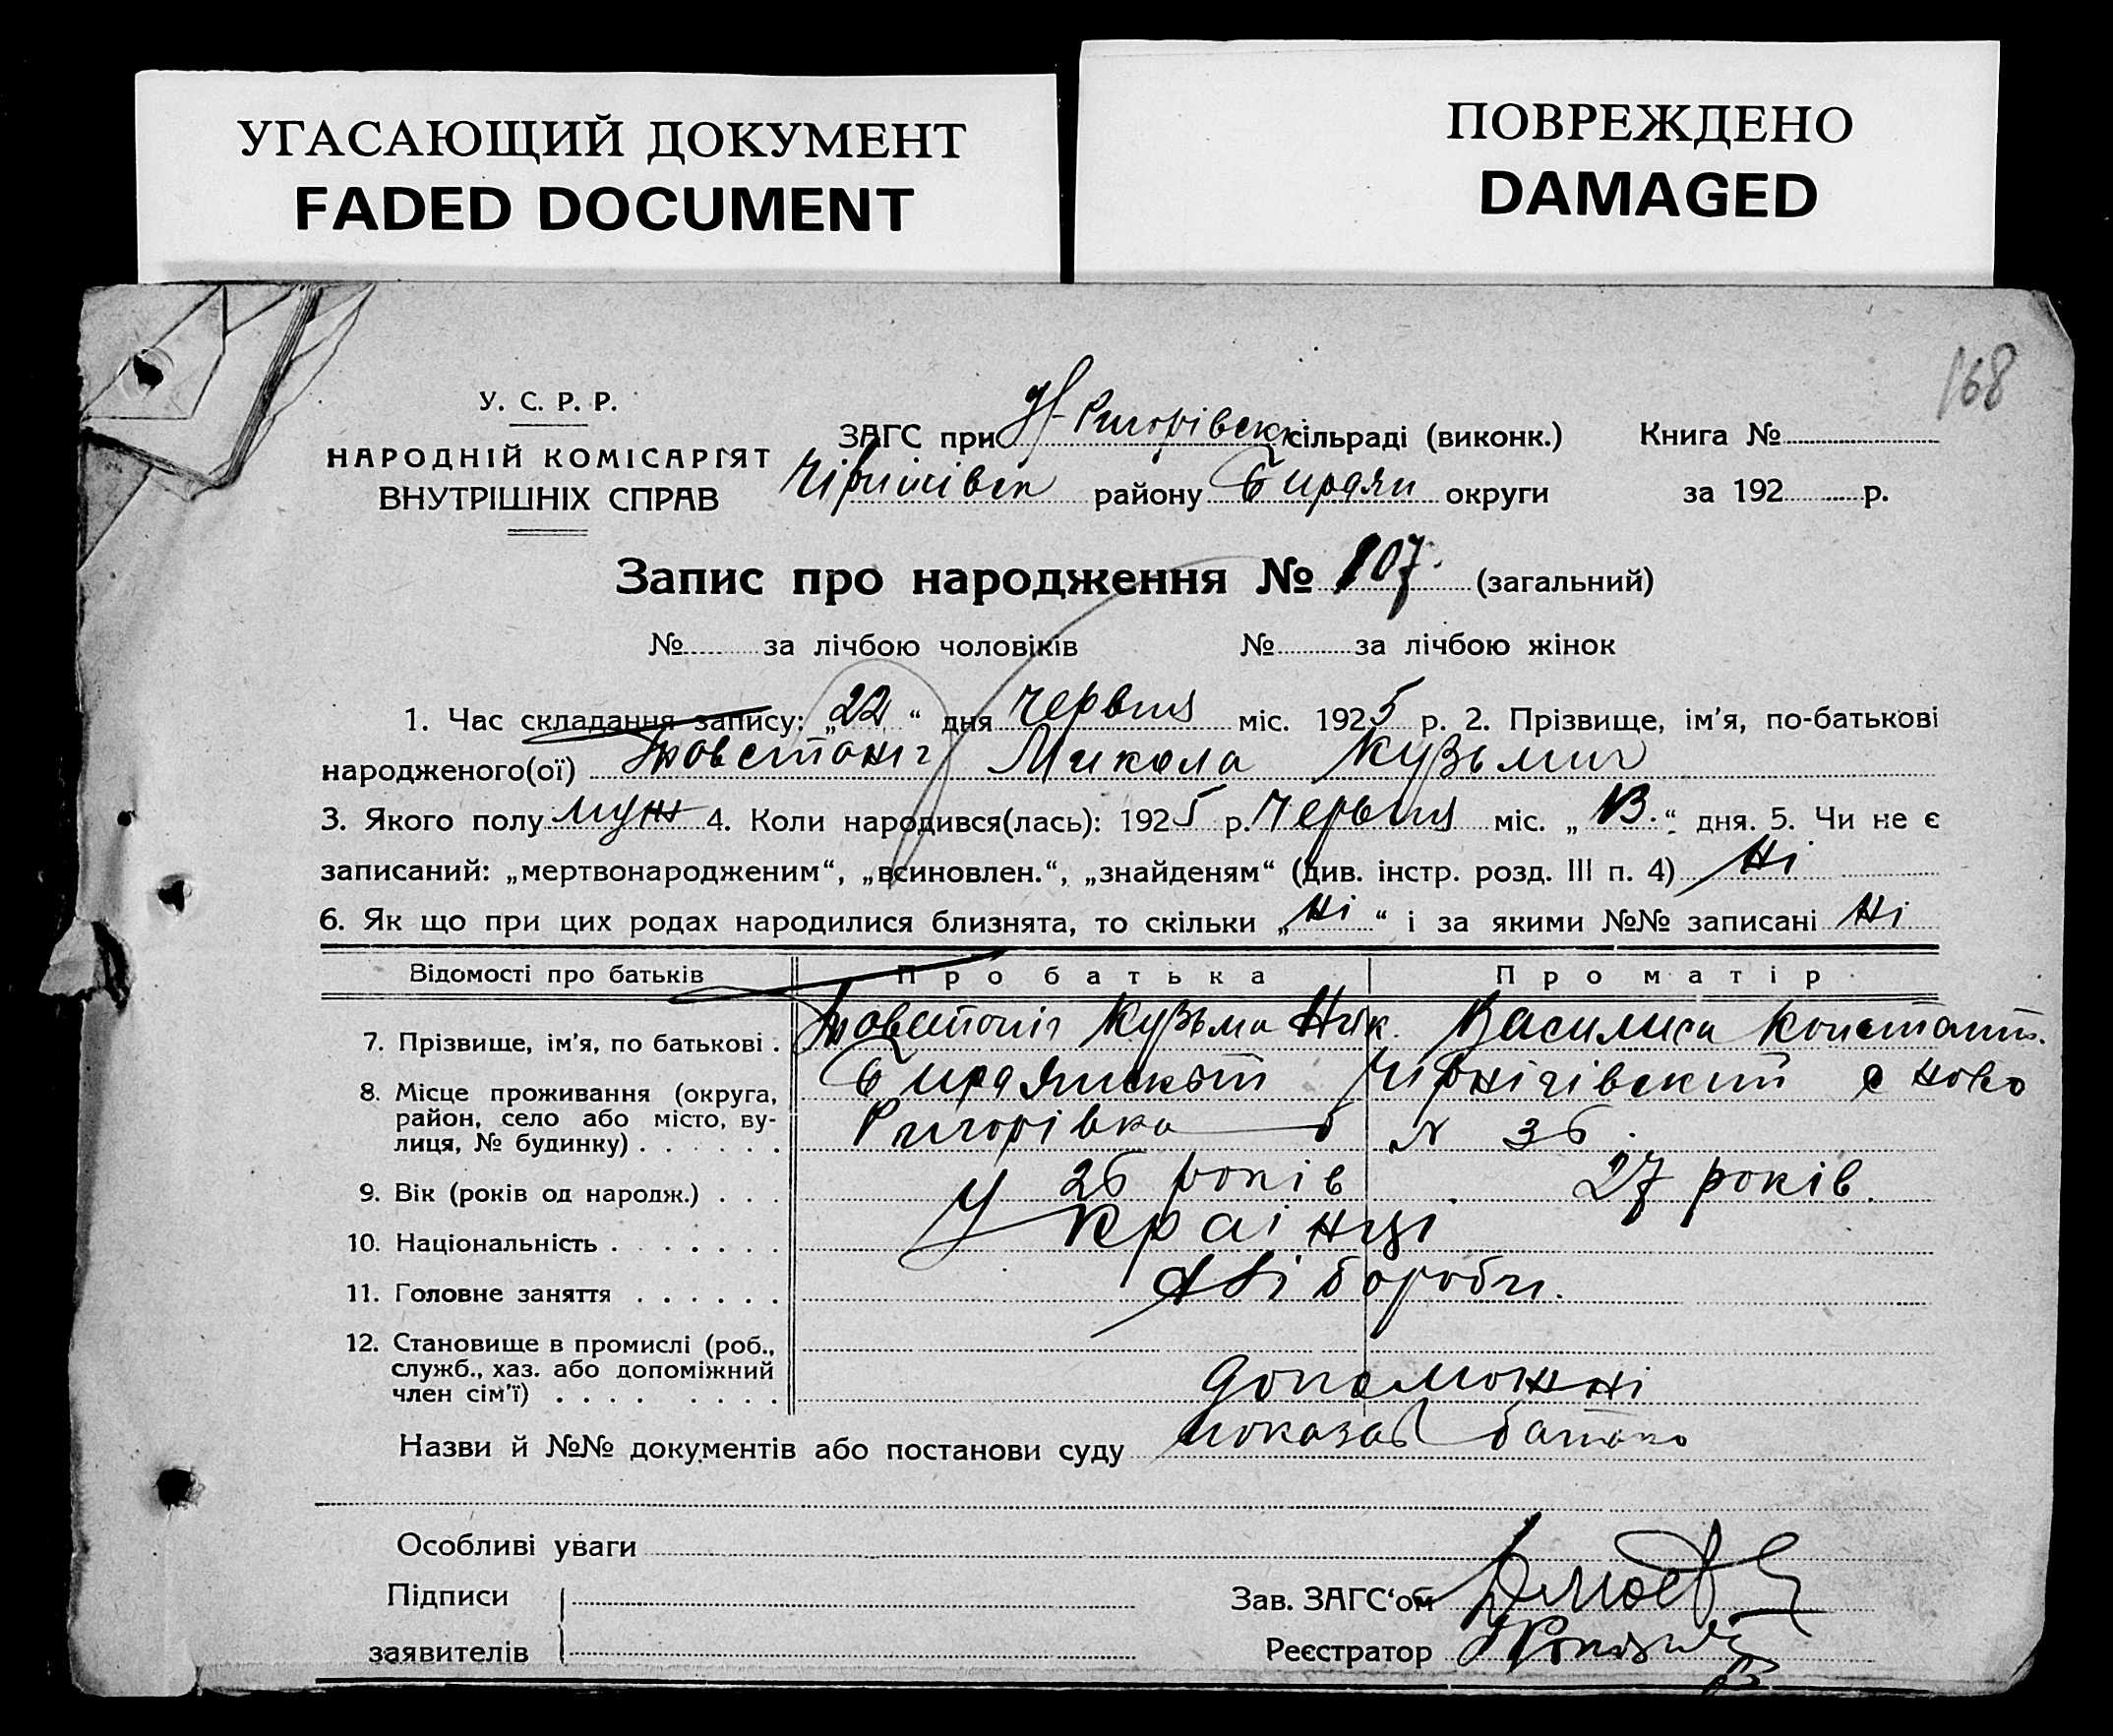 УГАСАЮЩИЙ ДОКУМЕНТ
FADED DOCUMENT
ПОВРЕЖДЕНО
DAMAGED
168
У. С. Р. Р.
НАРОДНІЙ КОМІСАРІЯТ
ВНУТРІШНІХ СПРАВ
ЗАГС при Н-Ригорівск сільраді (виконк.) Книга №
району округи за 192 р.
Запис про народження № 107. (загальний)
№ за лічбою чоловіків № за лічбою жінок
1. Час складання запису: „22“ дня Червня міс. 1925 р. 2. Прізвище, ім'я, по-батькові
народженого(ої) Микола Кузьмич
3. Якого полу муж 4. Коли народився(лась): 1925 р. Червня міс. „13.“ дня. 5. Чи не є
записаний: „мертвонародженим“, „всиновлен.“, „знайденям“ (див. інстр. розд. III п. 4) Ні
6. Як що при цих родах народилися близнята, то скільки „Ні“ і за якими №№ записані Ні
Відомості про батьків Про батька Про матір
7. Прізвище, ім'я, по батькові . Кузьма Ник. Василиса Констант.
8. Місце проживання (округа, Чернігівский с Ново
район, село або місто, ву-
лиця, № будинку) . . . . . . Ригорівка б N 36.
9. Вік (років од народж.) . . . 26 років 27 років.
10. Національність . . . . . . . Українці
11. Головне заняття . . . . . . Хліборобч.
12. Становище в промислі (роб.,
служб., хаз. або допоміжний
член сім'ї) . . . . . . . . допоможні
Назви й №№ документів або постанови суду показав батько
Особливі уваги
Підписи
заявителів
Зав. ЗАГС'ом
Реєстратор